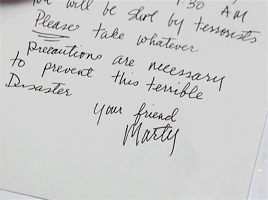 you will be shot by terrorists
Please take whatever
precautions are necessary
to prevent this terrible
Disaster
your friend
Marty